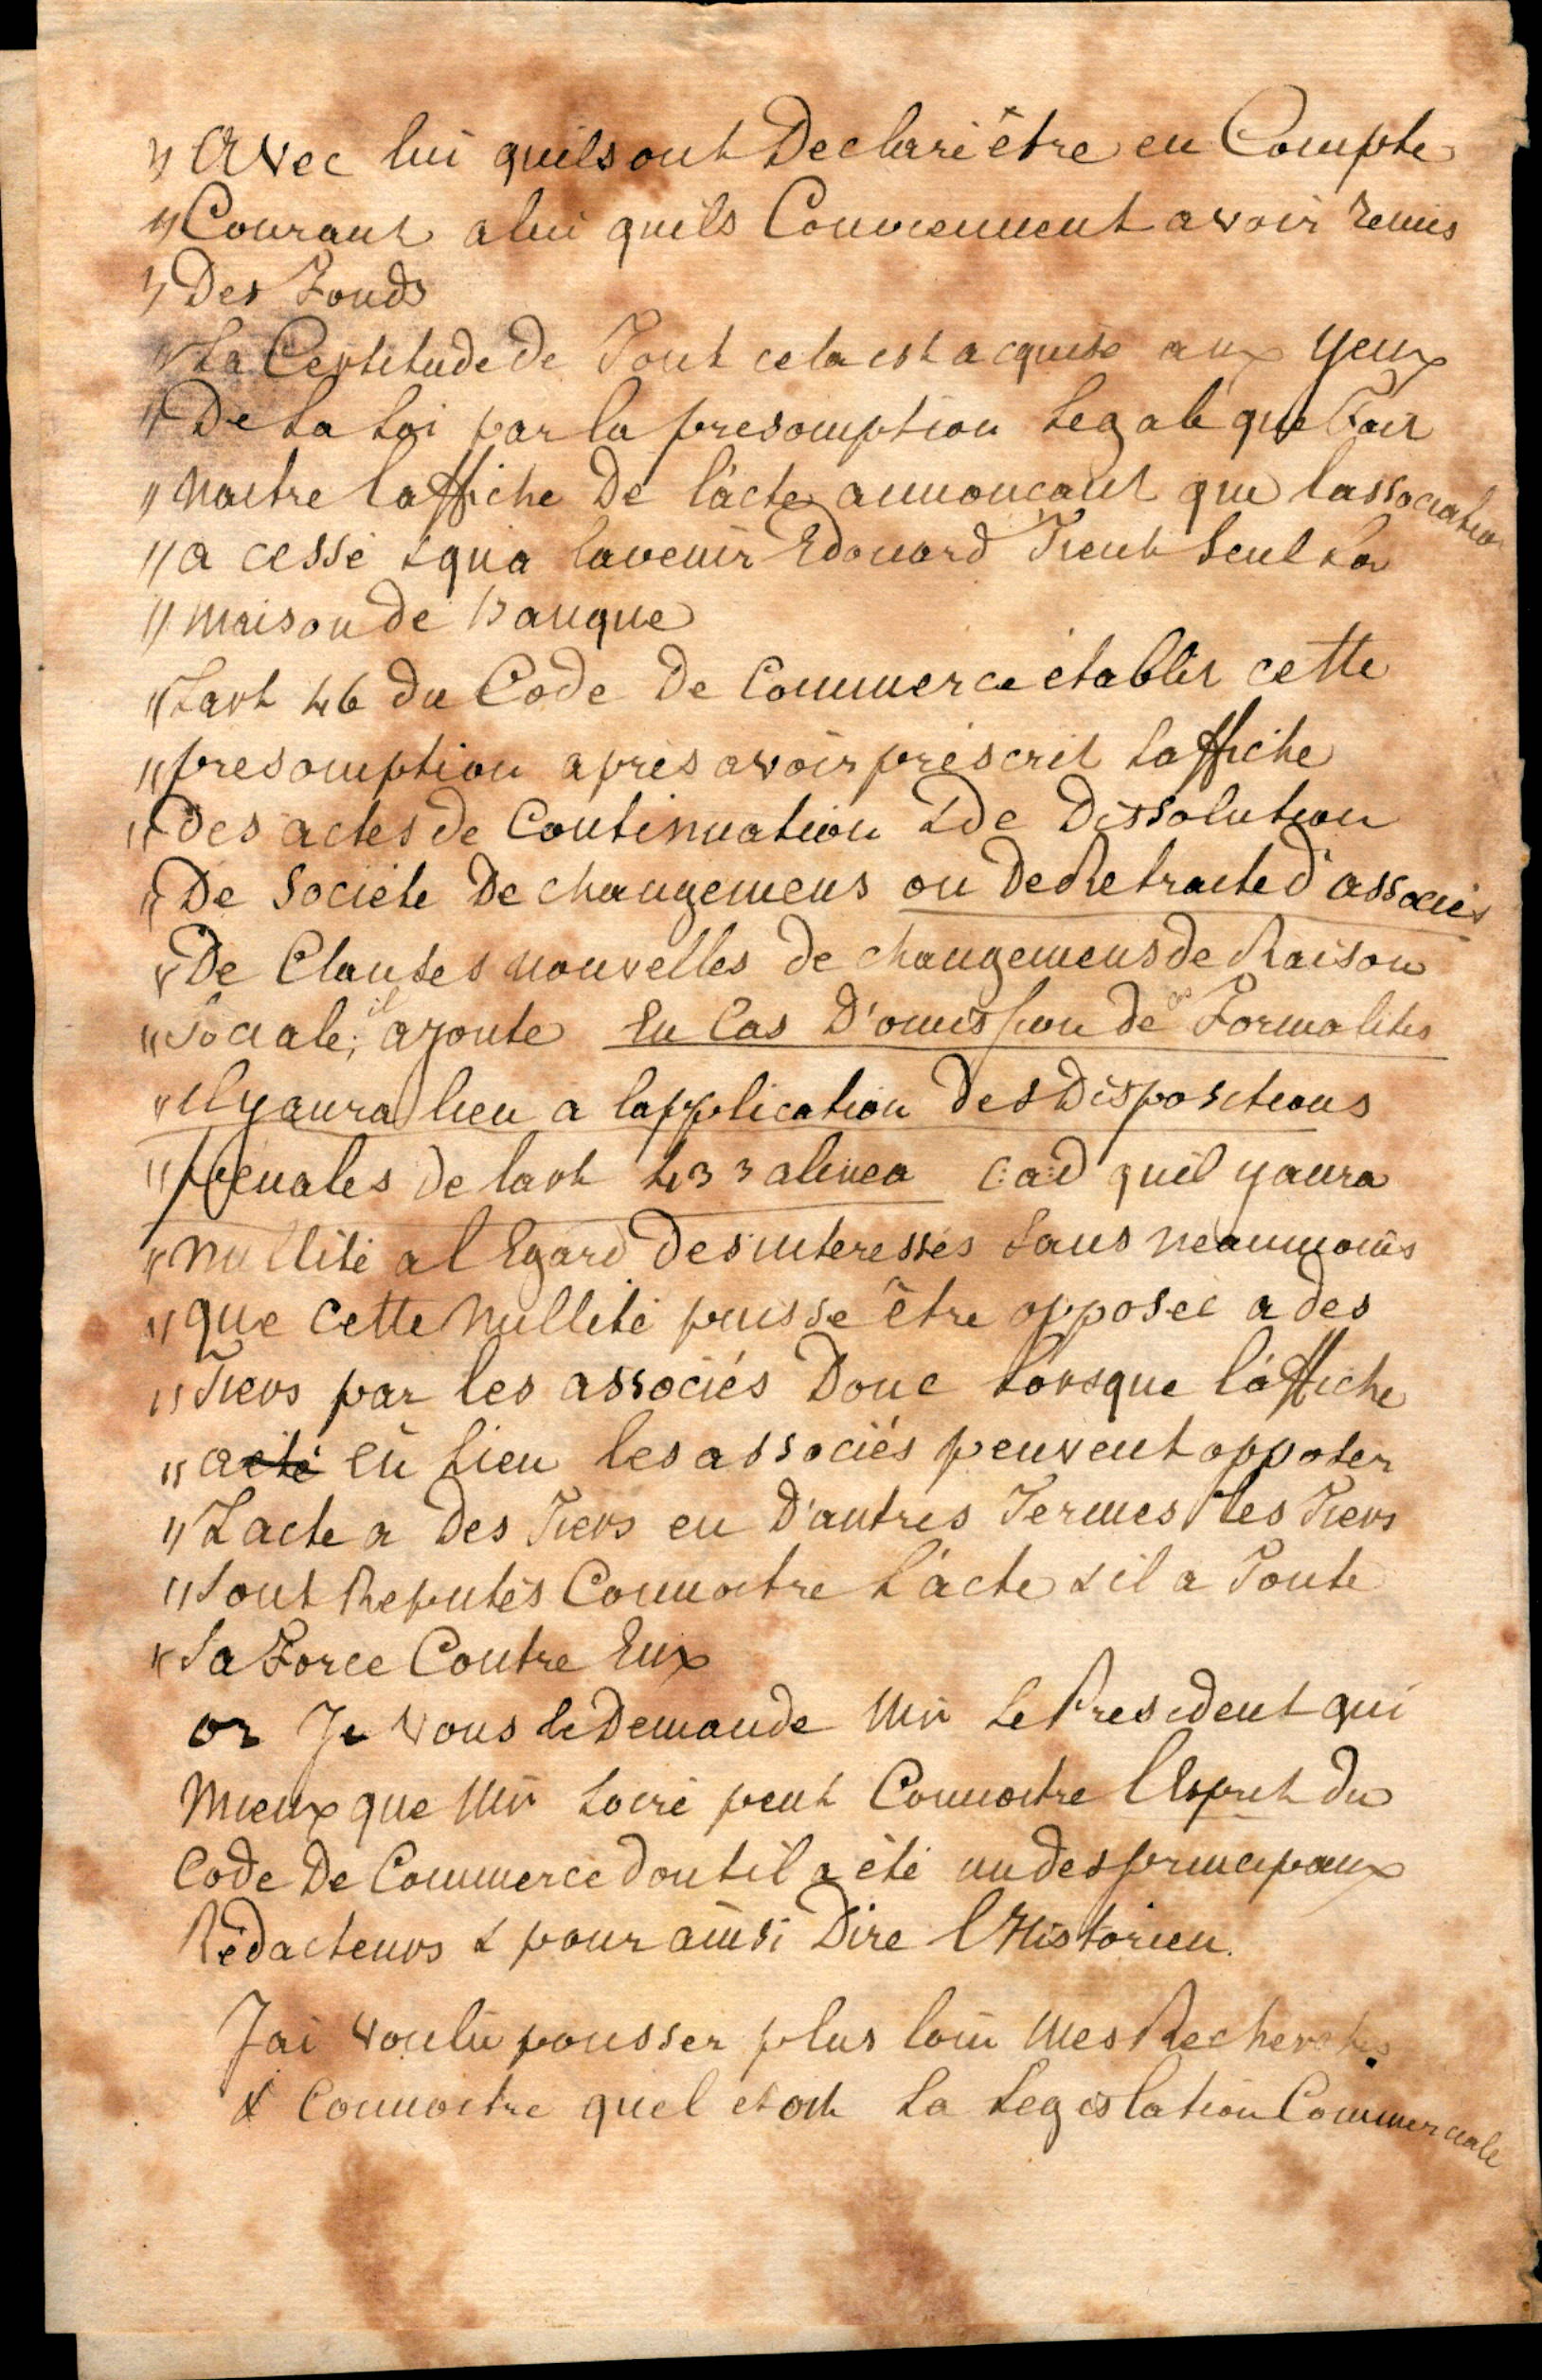 " Avec lui quils ont Declaré être en Compte
" Courant a lui quils Conviennent avoir remis
" Des Fonds
" La Certitude de Tout cela est acquise aux yeux
" De La Loi par la presomption Legale que Fait
" Naitre laffiche De lácte annoncant que lassociation
" a cessé & qua lavenir Edouard Tient Seul La
" Maison de Banque
" Lart 46 du Code De Commerce établit cette
" presomption aprés avoir préscrit Laffiche
" Des actes de Continuation & De Dissolution
" De Societe De changemens ou De Retraite d'associés
" De Clauses nouvelles de changemens de Raison
" Sociale; il ajoute En Cas D'omission de ces Formalités
" il y aura lieu a lapplication Des Dispositions
" penales de lart 43 3 alinea c:a:d quil y aura
" Nullité a l Egard des interessés Sans néanmoins
" que cette Nullité puisse être opposée a des
" Tiers par les associés Donc Lorsque láffiche
" a eté eu Lieu les associés peuvent opposer
" Lacte a Des Tiers en D'autres Termes les Tiers
" Sont Reputés Connoitre L'ácte & il a Toute
" Sa Force Contre Eux
or Je vous le Demande Mr Le President qui
Mieux que Mr Locré peut Connoitre lEsprit du
Code De Commerce dont il a été un des principaux
Rédacteurs & pour ainsi Dire lHistorien.
Jai voulu pousser plus loin Mes Recherches
& Connoitre quel etoit La Legislation Commerciale